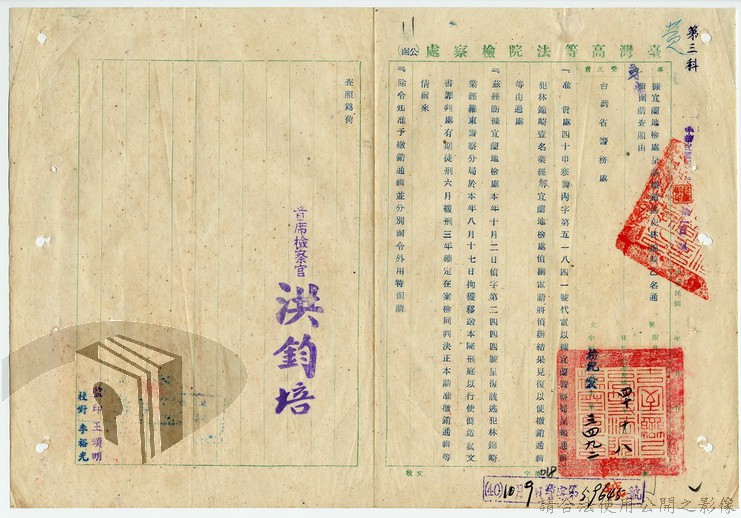 第三科
臺灣高等法院檢察處公函
據宜蘭地檢處
函請查照由
台灣省警務處
一、准 貴處四十申寒警丙字第五一八四一號代電以據宜蘭警察局
犯林錦崎壹名業經解宜蘭地檢處偵辦電請將偵辦結果見復以便撤銷通緝
等由過處
二、茲經飭據宜蘭地檢處本年十月二日偵字第二四四四號呈復該逃犯林錦崎
業經羅東警察分局於本年八月十七日拘獲移送本院刑庭以行使偽造私文
書罪判處有期徒刑六月緩刑三年確定在案檢同判決正本請准撤銷通緝等
情前來
三、除令知准予撤銷通緝並分別函令外用特函請
查照為荷
首席檢察官 洪鈞培
監印 王頌明
校對 李裕光
四十 十 八
檢紀
三四九二
(40)10月9日
59645號
請合法使用公開之影像